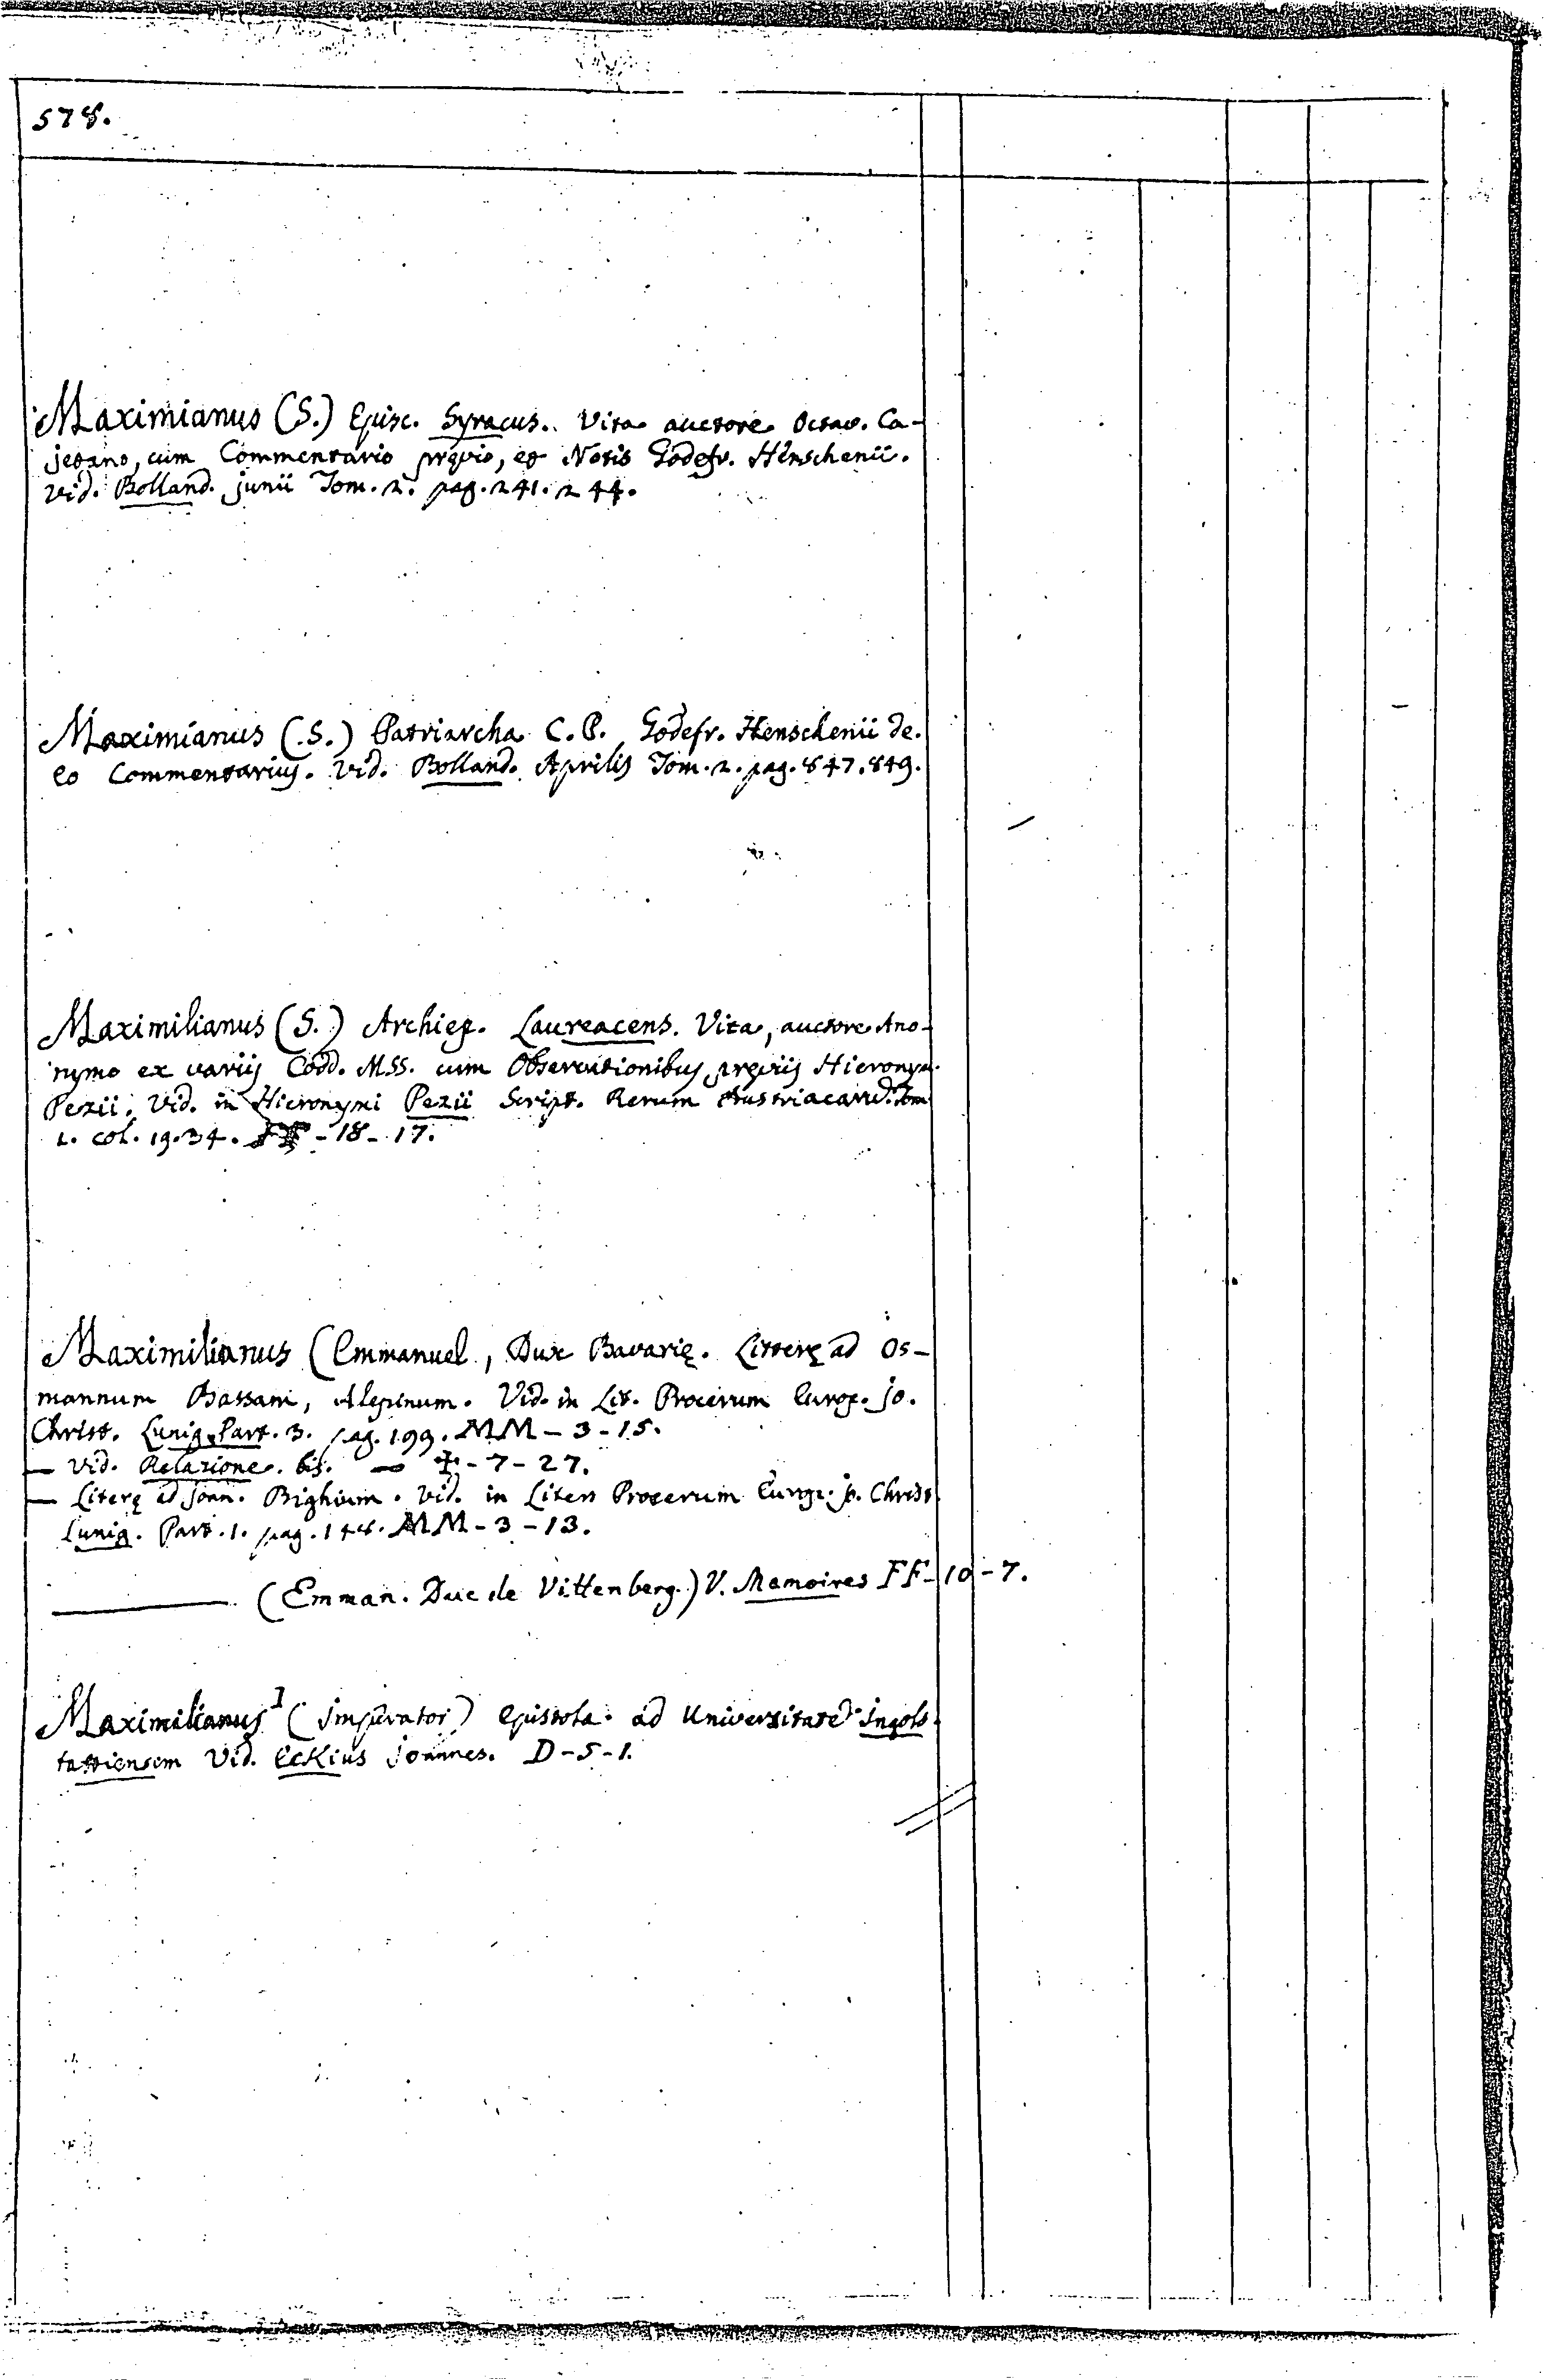 578.
Maximianus (S.) Episc. Syracus. Vita auctore Octav. Ca-
jetano, cum Commentario pręvio, et Notis Godefr. Henschenii.
vid. Bolland. junii Tom. 2. pag. 241. 244.
Maximianus (S.) Patriarcha C. P. Godefr. Henschenii de
eo Commentarius. Vid. Bolland. Aprilis Tom. 2. pag. 847. 849.
Maximilianus (S.) Archiep. Laureacens. Vita, auctore Ano-
nymo ex variis Codd. MSS. cum Observationibus pręviis Hieronymi
Pezii. Vid. in Hieronymi Pezii Script. Rerum Austriacarū. Tom
1. col. 19. 34. - 18 - 17.
Maximilianus (Emmanuel, Dux Bavarię. Litterę ad Os-
mannum Bassam, Alepinum. Vid. in Lit. Procerum Europ. jo.
Christ. Lunig. Part. 3. pag. 199. MM - 3 - 15.
— Vid. Relazione. bis. — - 7 - 27.
— Literę ad Joan. Bighium. vid. in Liter. Procerum Europ. jo. Christ.
Lunig. Part. 1. pag. 148. MM - 3 - 13.
——— (Emman. Duc de Vittenberg.) V. Memoires FF - 10 - 7.
Maximilianus I (Imperator) Epistola ad Universitatē Ingols-
tattiensem Vid. Eckius Joannes. D - 5 - 1.